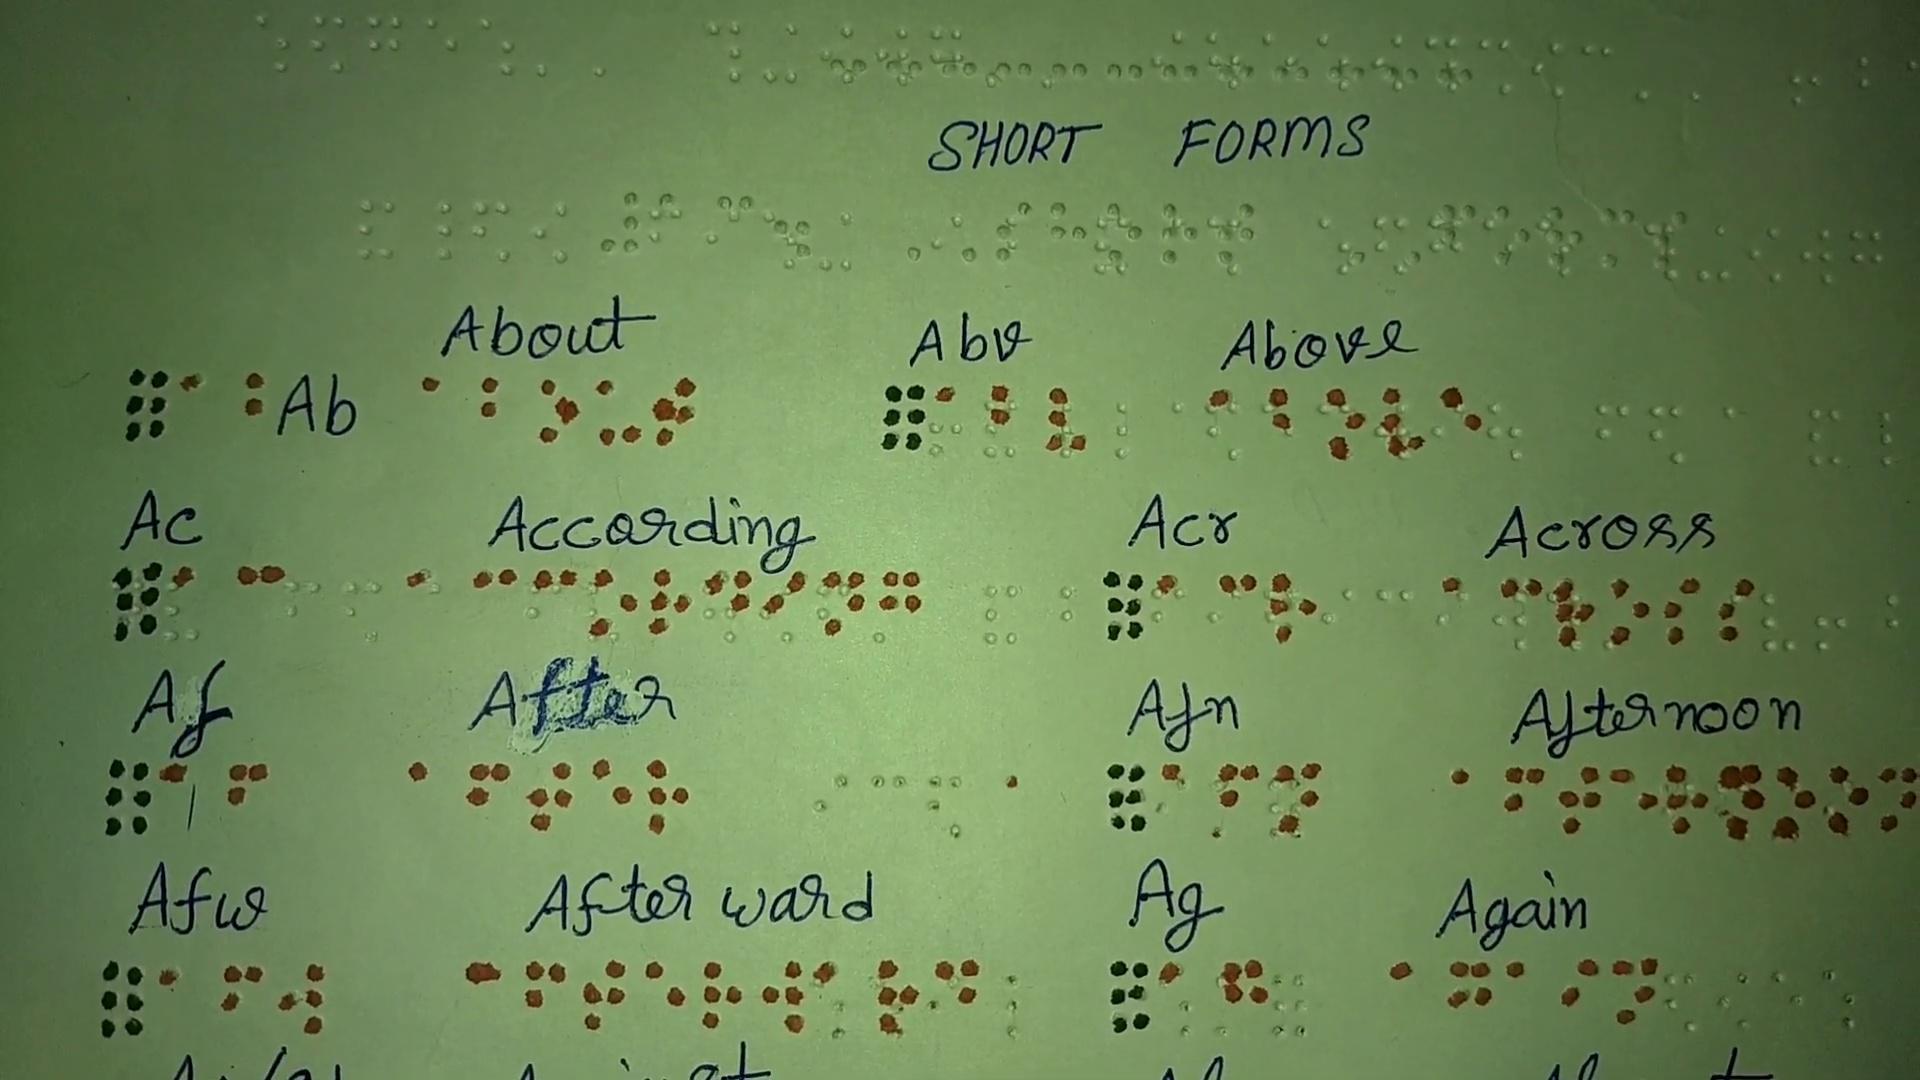 SHORT FORMS
About Abv Above
Ab
Ac According Acr Across
Af After Afn Afternoon
Afw After ward Ag Again